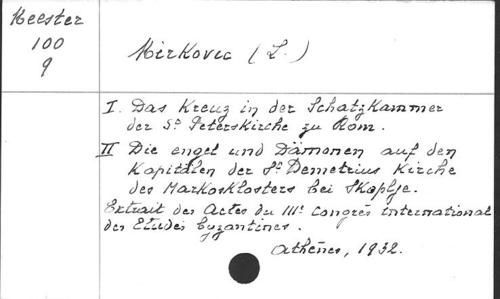 Heester
100
9
Mirkovic (L.)
I. Das Kreuz in der Schatzkammer
der St Peterskirche zu Rom.
II Die engel und Dämonen auf den
Kapitälen der St Demetrius Kirche
des Markosklosters bei Skoplje.
Extrait des Actes du IIIe congrès international
des Etudes byzantines.
Athènes, 1932.